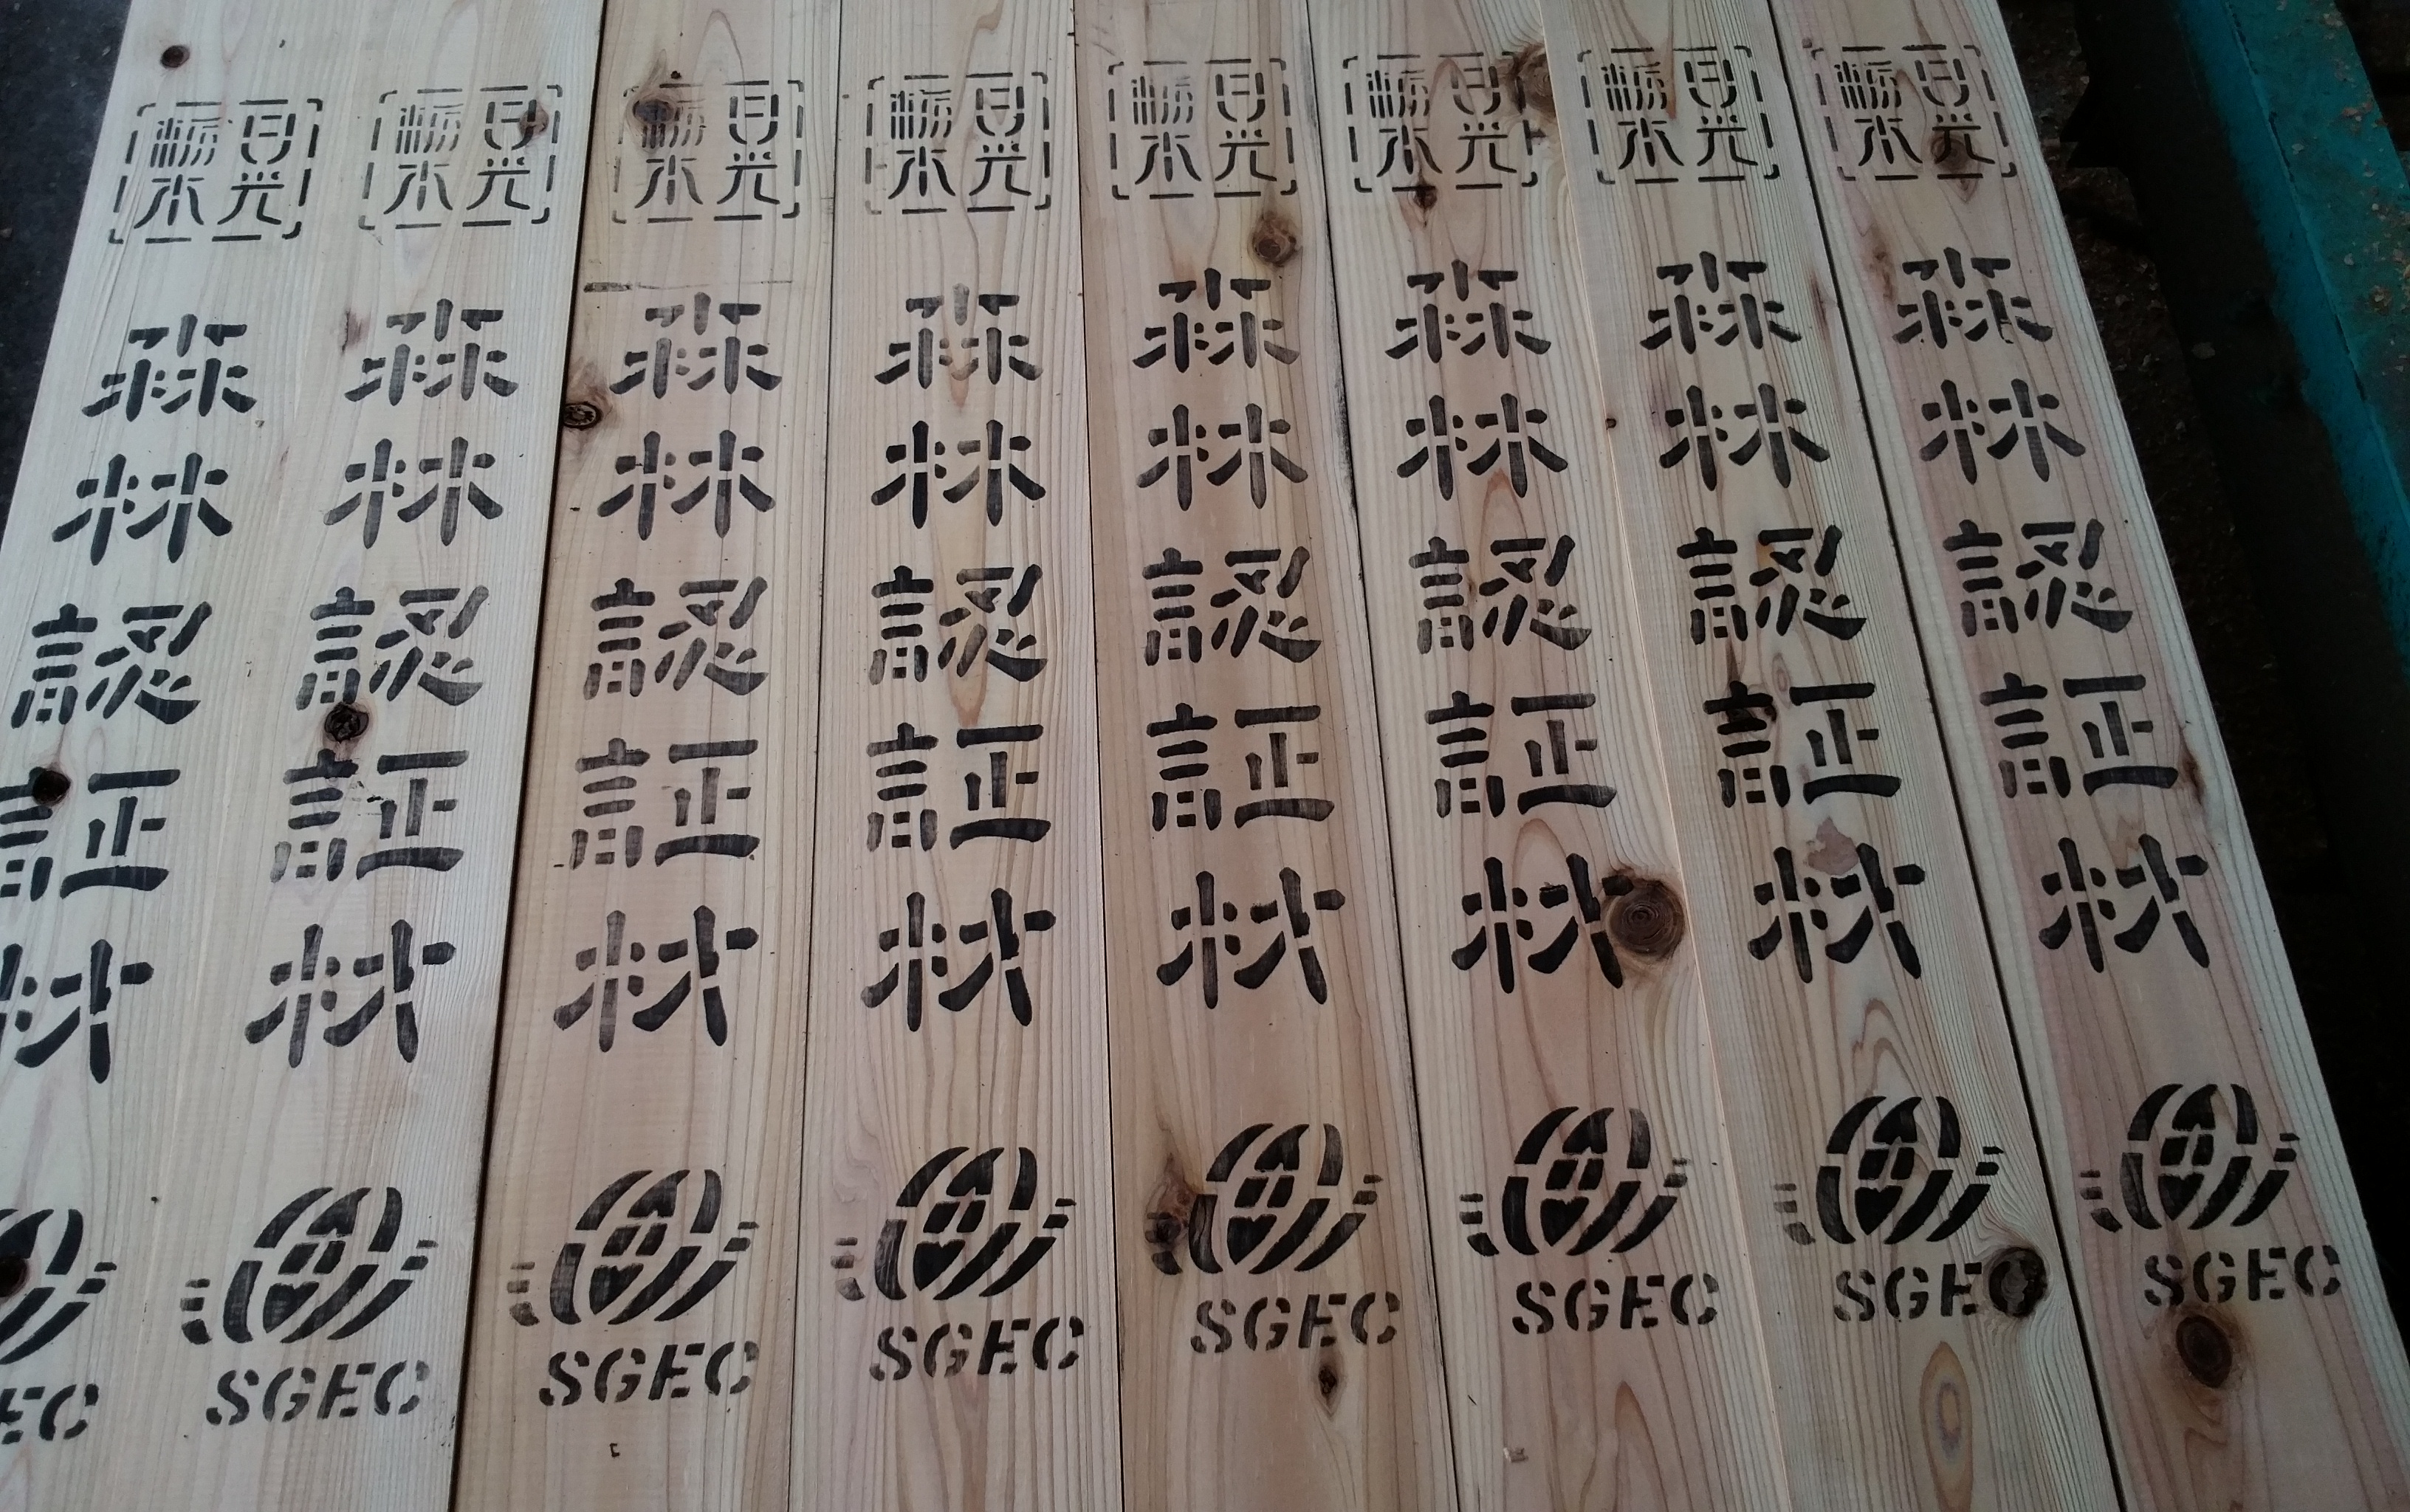 日光
栃木
森林認証材
SGEC
日光
栃木
森林認証材
SGEC
日光
栃木
森林認証材
SGEC
日光
栃木
森林認証材
SGEC
日光
栃木
森林認証材
SGEC
日光
栃木
森林認証材
SGEC
日光
栃木
森林認証材
SGEC
日光
栃木
森林認証材
EC